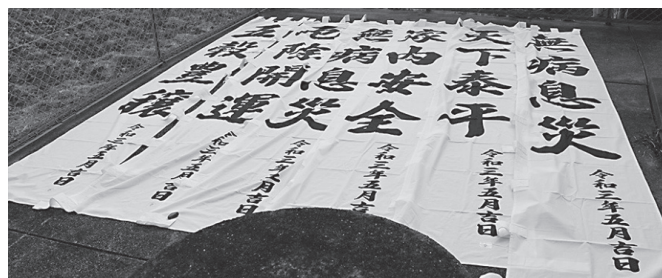 無病息災
令和三年五月吉日
天下泰平
令和三年五月吉日
家内安全
令和三年五月吉日
無病息災
令和三年五月吉日
厄除開運
令和三年五月吉日
五穀豊穣
令和三年五月吉日